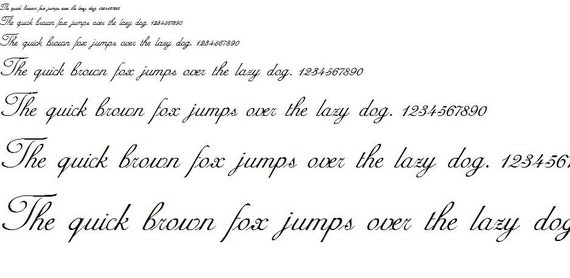 The quick brown fox jumps over the lazy dog. 1234567890
The quick brown fox jumps over the lazy dog. 1234567890
The quick brown fox jumps over the lazy dog. 1234567890
The quick brown fox jumps over the lazy dog. 1234567890
The quick brown fox jumps over the lazy dog. 1234567890
The quick brown fox jumps over the lazy dog. 1234567
The quick brown fox jumps over the lazy dog